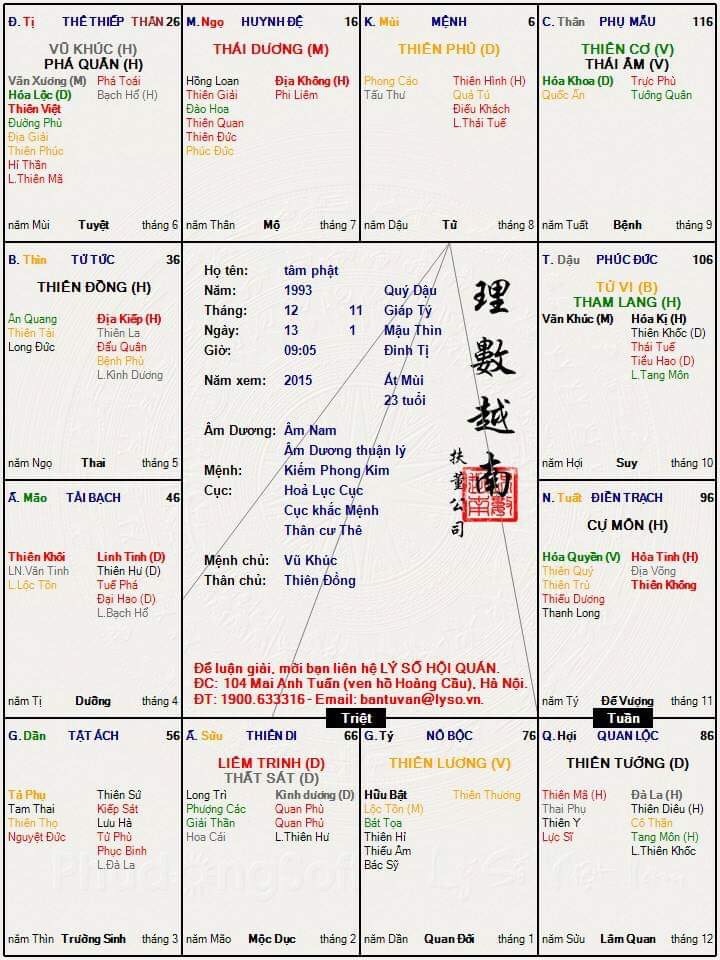 Đ. Tị THÊ THIẾP THÂN 26
VŨ KHÚC (H)
PHÁ QUÂN (H)
Văn Xương (M) Phá Toái
Hóa Lộc (D) Bạch Hổ (H)
Thiên Việt
Đường Phù
Địa Giải
Thiên Phúc
Hỉ Thần
L.Thiên Mã
năm Mùi Tuyệt tháng 6
M. Ngọ HUYNH ĐỆ 16
THÁI DƯƠNG (M)
Hồng Loan Địa Không (H)
Thiên Giải Phi Liêm
Đào Hoa
Thiên Quan
Thiên Đức
Phúc Đức
năm Thân Mộ tháng 7
K. Mùi MỆNH 6
THIÊN PHỦ (D)
Phong Cáo Thiên Hình (H)
Tấu Thư Quả Tú
Điếu Khách
L.Thái Tuế
năm Dậu Tử tháng 8
C. Thân PHỤ MẪU 116
THIÊN CƠ (V)
THÁI ÂM (V)
Hóa Khoa (D) Trực Phù
Quốc Ấn Tướng Quân
năm Tuất Bệnh tháng 9
B. Thìn TỬ TỨC 36
THIÊN ĐỒNG (H)
Ân Quang Địa Kiếp (H)
Thiên Tài Thiên La
Long Đức Đẩu Quân
Bệnh Phù
L.Kình Dương
năm Ngọ Thai tháng 5
Họ tên: tâm phật
Năm: 1993 Quý Dậu
Tháng: 12 11 Giáp Tý
Ngày: 13 1 Mậu Thìn
Giờ: 09:05 Đinh Tị
Năm xem: 2015 Ất Mùi
23 tuổi
Âm Dương: Âm Nam
Âm Dương thuận lý
Mệnh: Kiếm Phong Kim
Cục: Hoả Lục Cục
Cục khắc Mệnh
Thân cư Thê
Mệnh chủ: Vũ Khúc
Thân chủ: Thiên Đồng
理數越南
扶董公司
Để luận giải, mời bạn liên hệ LÝ SỐ HỘI QUÁN.
ĐC: 104 Mai Anh Tuấn (ven hồ Hoàng Cầu), Hà Nội.
ĐT: 1900.633316 - Email: bantuvan@lyso.vn.
T. Dậu PHÚC ĐỨC 106
TỬ VI (B)
THAM LANG (H)
Văn Khúc (M) Hóa Kị (H)
Thiên Khốc (D)
Thái Tuế
Tiểu Hao (D)
L.Tang Môn
năm Hợi Suy tháng 10
Ấ. Mão TÀI BẠCH 46
Thiên Khôi Linh Tinh (D)
LN.Văn Tinh Thiên Hư (D)
L.Lộc Tồn Tuế Phá
Đại Hao (D)
L.Bạch Hổ
năm Tị Dưỡng tháng 4
N. Tuất ĐIỀN TRẠCH 96
CỰ MÔN (H)
Hóa Quyền (V) Hỏa Tinh (H)
Thiên Quý Địa Võng
Thiên Trù Thiên Không
Thiếu Dương
Thanh Long
năm Tý Đế Vượng tháng 11
Triệt
Tuần
G. Dần TẬT ÁCH 56
Tả Phụ Thiên Sứ
Tam Thai Kiếp Sát
Thiên Thọ Lưu Hà
Nguyệt Đức Tử Phù
Phục Binh
L.Đà La
năm Thìn Trường Sinh tháng 3
Ấ. Sửu THIÊN DI 66
LIÊM TRINH (D)
THẤT SÁT (D)
Long Trì Kình dương (D)
Phượng Các Quan Phủ
Giải Thần Quan Phù
Hoa Cái L.Thiên Hư
năm Mão Mộc Dục tháng 2
G. Tý NÔ BỘC 76
THIÊN LƯƠNG (V)
Hữu Bật Thiên Thương
Lộc Tồn (M)
Bát Tọa
Thiên Hỉ
Thiếu Âm
Bác Sỹ
năm Dần Quan Đới tháng 1
Q. Hợi QUAN LỘC 86
THIÊN TƯỚNG (D)
Thiên Mã (H) Đà La (H)
Thai Phụ Thiên Diêu (H)
Thiên Y Cô Thần
Lực Sĩ Tang Môn (H)
L.Thiên Khốc
năm Sửu Lâm Quan tháng 12